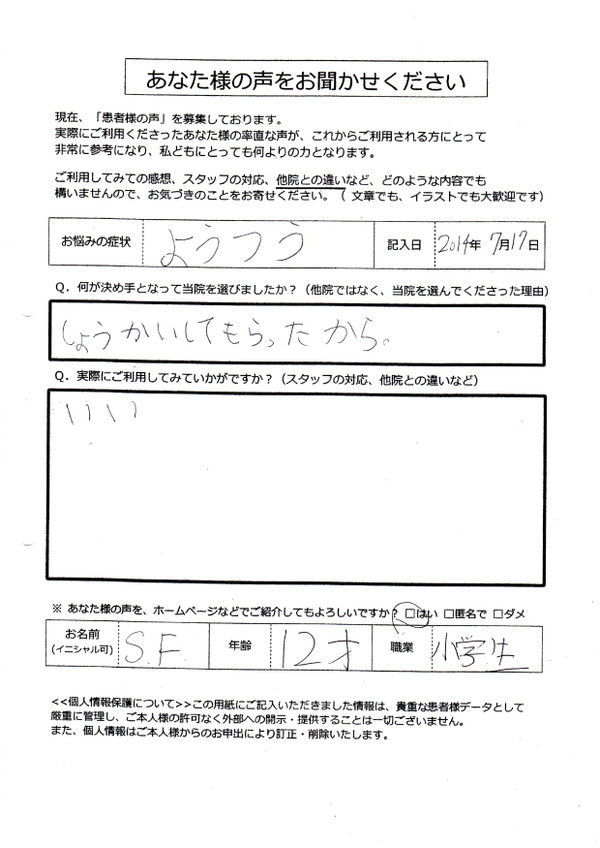 あなた様の声をお聞かせください
現在、「患者様の声」を募集しております。
実際にご利用くださったあなた様の率直な声が、これからご利用される方にとって
非常に参考になり、私どもにとっても何よりの力となります。
ご利用してみての感想、スタッフの対応、他院との違いなど、どのような内容でも
構いませんので、お気づきのことをお寄せください。（ 文章でも、イラストでも大歓迎です）
お悩みの症状 ようつう 記入日 2014年 7月17日
Q．何が決め手となって当院を選びましたか？（他院ではなく、当院を選んでくださった理由）
しょうかいしてもらったから。
Q．実際にご利用してみていかがですか？（スタッフの対応、他院との違いなど）
いい
※ あなた様の声を、ホームページなどでご紹介してもよろしいですか？ □はい □匿名で □ダメ
お名前
(イニシャル可) S.F. 年齢 12才 職業 小学生
<<個人情報保護について>>この用紙にご記入いただきました情報は、貴重な患者様データとして
厳重に管理し、ご本人様の許可なく外部への開示・提供することは一切ございません。
また、個人情報はご本人様からのお申出により訂正・削除いたします。